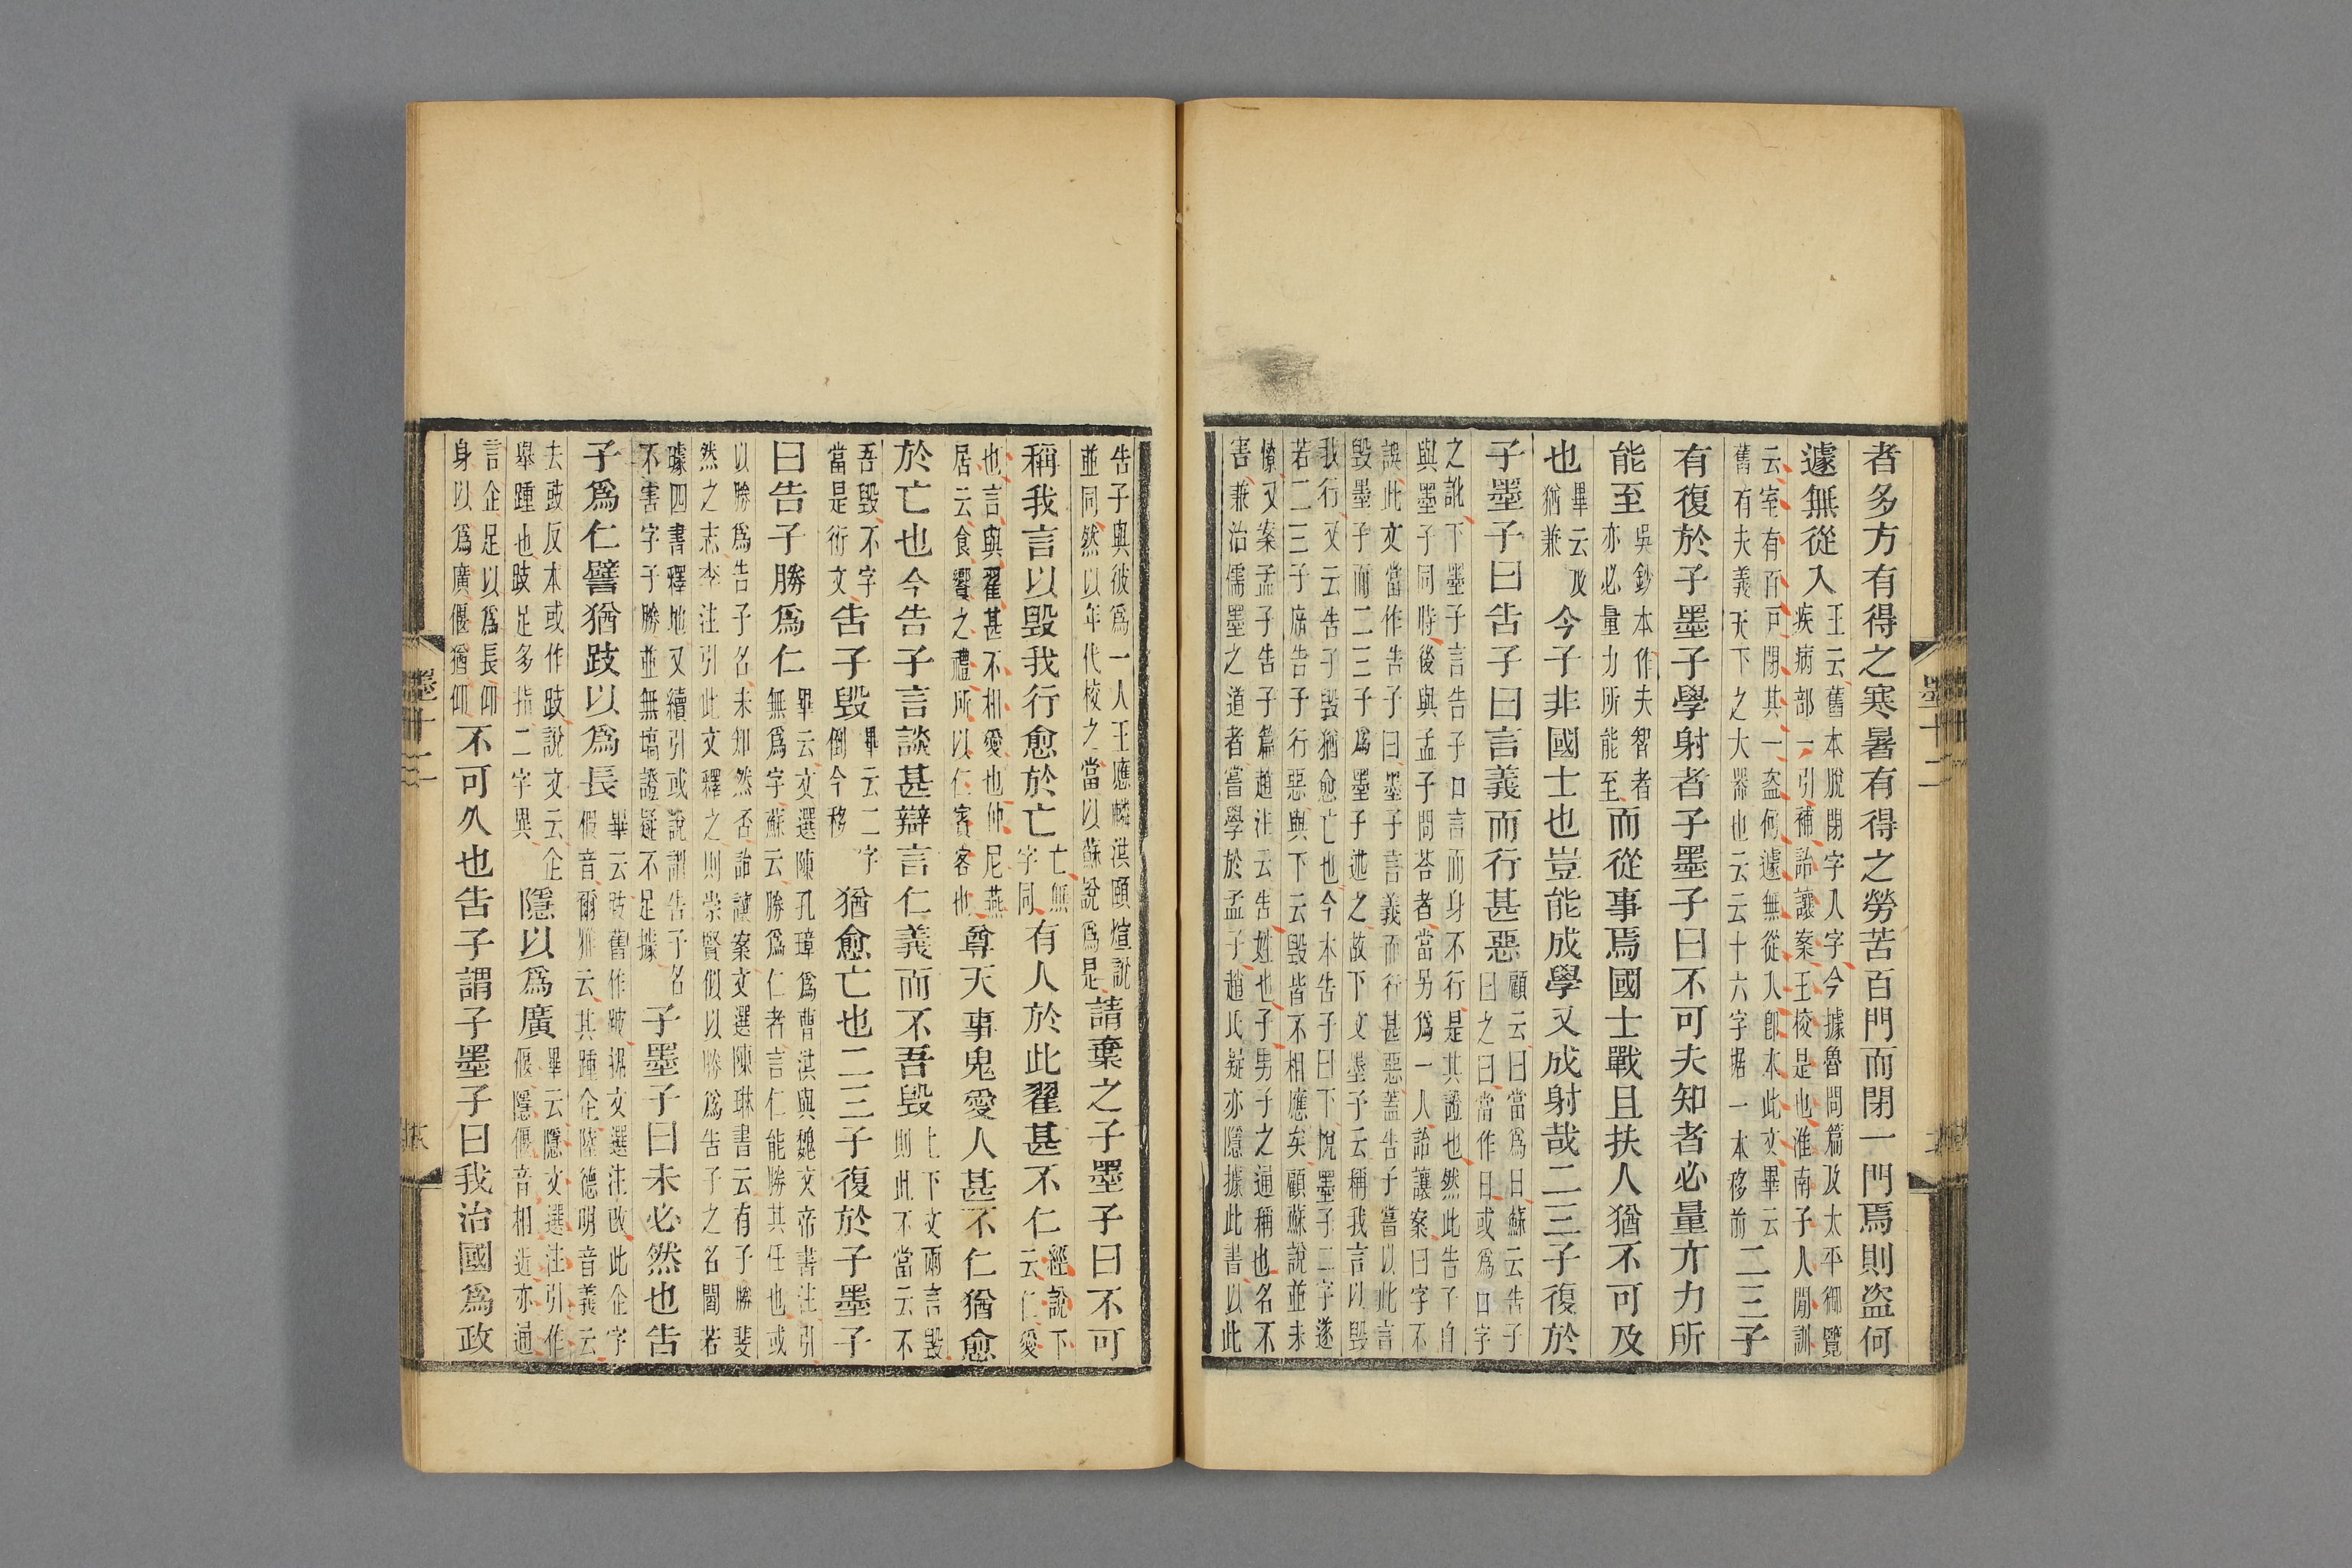 者多方有得之寒暑有得之勞苦百門而閉一門焉則盜何
遽無從入王云舊本脫閉字人字今據魯問篇及太平御覽疾病部一引補詒讓案王校是也淮南子人閒訓
云室有百戸閉其一盜何遽無從入卽本此文畢云舊有夫義天下之大器也云云十六字据一本移前二三子
有復於子墨子學射者子墨子曰不可夫知者必量亓力所
能至吳鈔本作夫智者亦必量力所能至而從事焉國士戰且扶人猶不可及
也畢云及猶兼今子非國士也豈能成學又成射哉二三子復於
子墨子曰告子曰言義而行甚惡顧云曰當爲日蘇云告子曰之曰當作日或爲口字
之訛下墨子言告子口言而身不行是其證也然此告子自與墨子同時後與孟子問荅者當另爲一人詒讓案曰字不
誤此文當作告子曰墨子言義而行甚惡蓋告子嘗以此言毀墨子而二三子爲墨子述之故下文墨子云稱我言以毀
我行又云告子毀猶愈亡也今本告子曰下挩墨子二字遂若二三子席告子行惡與下云毀皆不相應矣顧蘇說並未
憭又案孟子告子篇趙注云告姓也子男子之通稱也名不害兼治儒墨之道者嘗學於孟子趙氏疑亦隱據此書以此
墨十二
告子與彼爲一人王應麟洪頤煊說並同然以年代校之當以蘇說爲是請棄之子墨子曰不可
稱我言以毀我行愈於亡亡無字同有人於此翟甚不仁經說下云仁愛
也言與翟甚不相愛也仲尼燕居云食饗之禮所以仁賓客也尊天事鬼愛人甚不仁猶愈
於亡也今告子言談甚辯言仁義而不吾毀上下文兩言毀則此不當云不
吾毀不字當是衍文告子毀畢云二字倒今移猶愈亡也二三子復於子墨子
曰告子勝爲仁畢云文選陳孔璋爲曹洪與魏文帝書注引無爲字蘇云勝爲仁者言仁能勝其任也或
以勝爲告子名未知然否詒讓案文選陳琳書云有子勝斐然之志李注引此文釋之則崇賢似以勝爲告子之名閻若
璩四書釋地又續引或說謂告子名不害字子勝並無塙證疑不足據子墨子曰未必然也告
子爲仁譬猶跂以爲長畢云跂舊作跛据文選注改此企字假音爾雅云其踵企陸德明音義云
去豉反本或作跂說文云企舉踵也跂足多指二字異隱以爲廣畢云隱文選注引作偃隱偃音相近亦通
言企足以爲長仰身以爲廣偃猶仰不可久也告子謂子墨子曰我治國爲政
墨十二